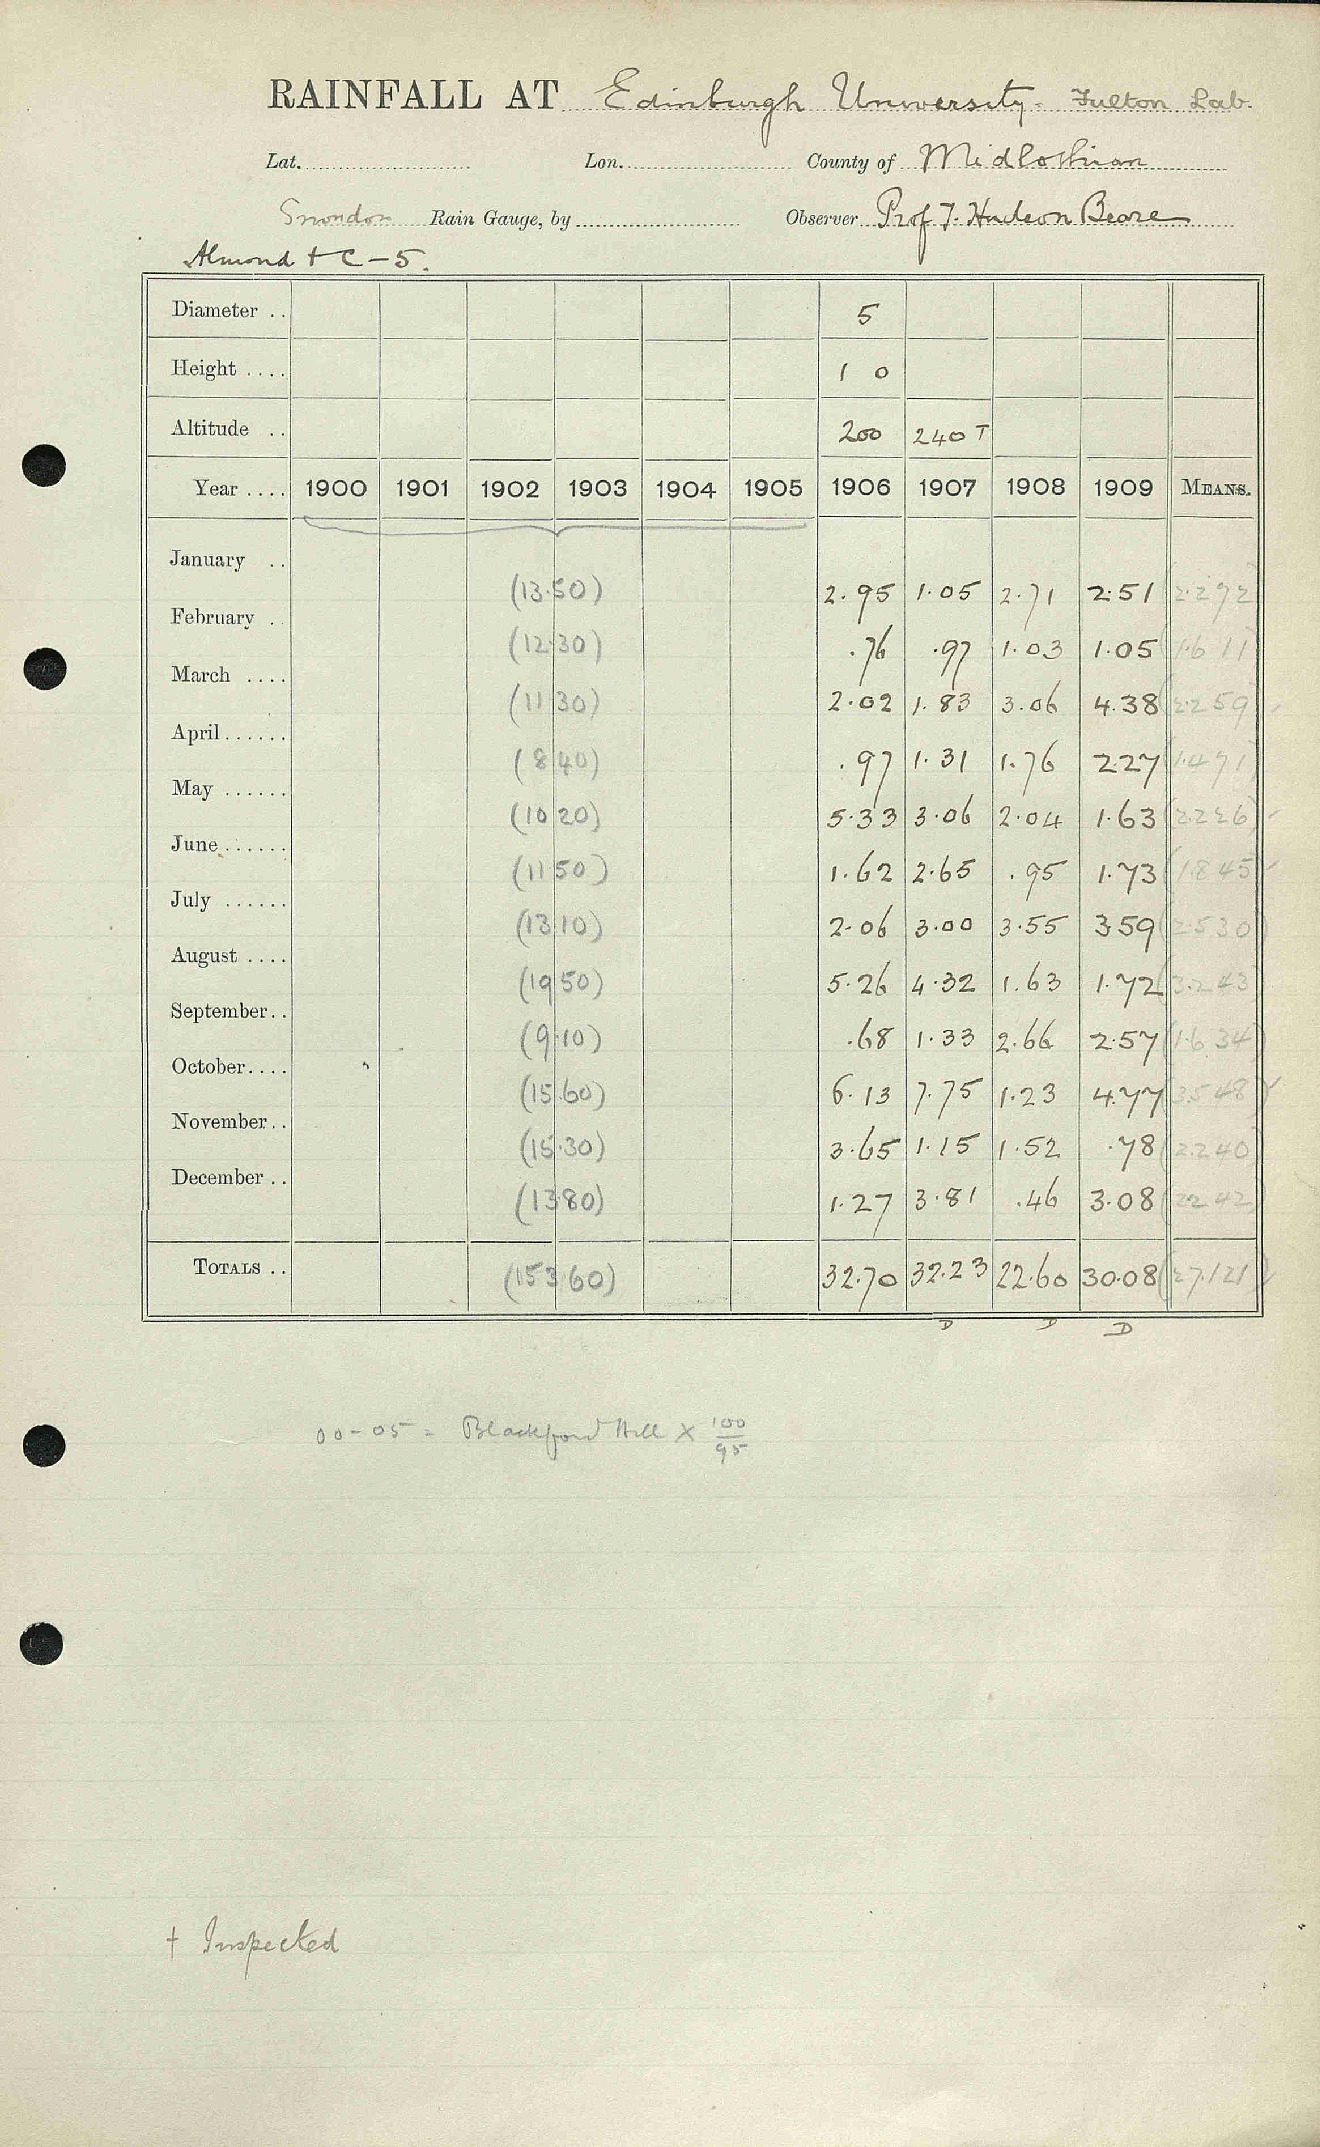 RAINFALL AT Edinburgh University. Fulton Lab.
Lat. Lon. County of Midlothian
Snowdon Rain Gauge, by Observer Prof T. Hudson Beare
Almond + C - 5.
Diameter .. 5
Height .... 1 0
Altitude .. 200 240 T
Year .... 1900 1901 1902 1903 1904 1905 1906 1907 1908 1909 MEANS.
January .. (13.50) 2.95 1.05 2.71 2.51 (2.292)
February . (12.30) .76 .97 1.03 1.05 (1.611)
March .... (11.30) 2.02 1.83 3.06 4.38 (2.259)
April ...... (8.40) .97 1.31 1.76 2.27 (1.471)
May ...... (10.20) 5.33 3.06 2.04 1.63 (2.226)
June ...... (11.50) 1.62 2.65 .95 1.73 (1.845)
July ...... (13.10) 2.06 3.00 3.55 3.59 (2.530)
August .... (19.50) 5.26 4.32 1.63 1.72 (3.243)
September .. (9.10) .68 1.33 2.66 2.57 (1.634)
October .... (15.60) 6.13 7.75 1.23 4.77 (3.548)
November .. (15.30) 3.65 1.15 1.52 .78 (2.240)
December .. (13.80) 1.27 3.81 .46 3.08 (2.242)
TOTALS .. (153.60) 32.70 32.23 22.60 30.08 (27.121)
D D D
00-05 = Blackford Hill X 100/95
† Inspected